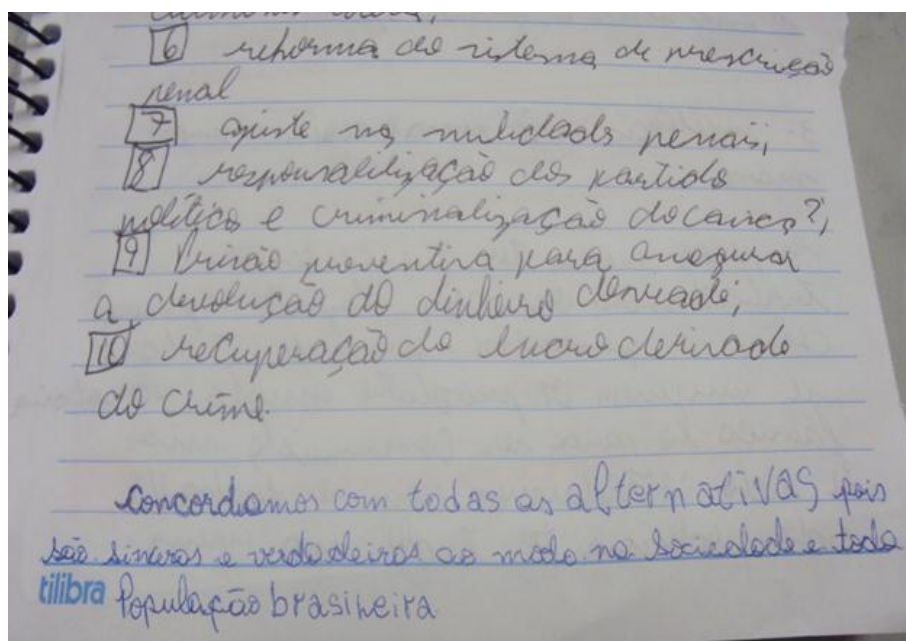 6 reforma do sistema de prescrição
penal
7 ajuste nas nulidades penais,
8 responsalilização dos partido
político e criminalização do caixa 2,
9 Prisão preventiva para assegurar
a devolução do dinheiro desviado;
10 recuperação do lucro derivado
do crime.
Concordamos com todas as alternativas pois
são sinceras e verdadeiras ao modo na sociedade e toda
tilibra População brasileira